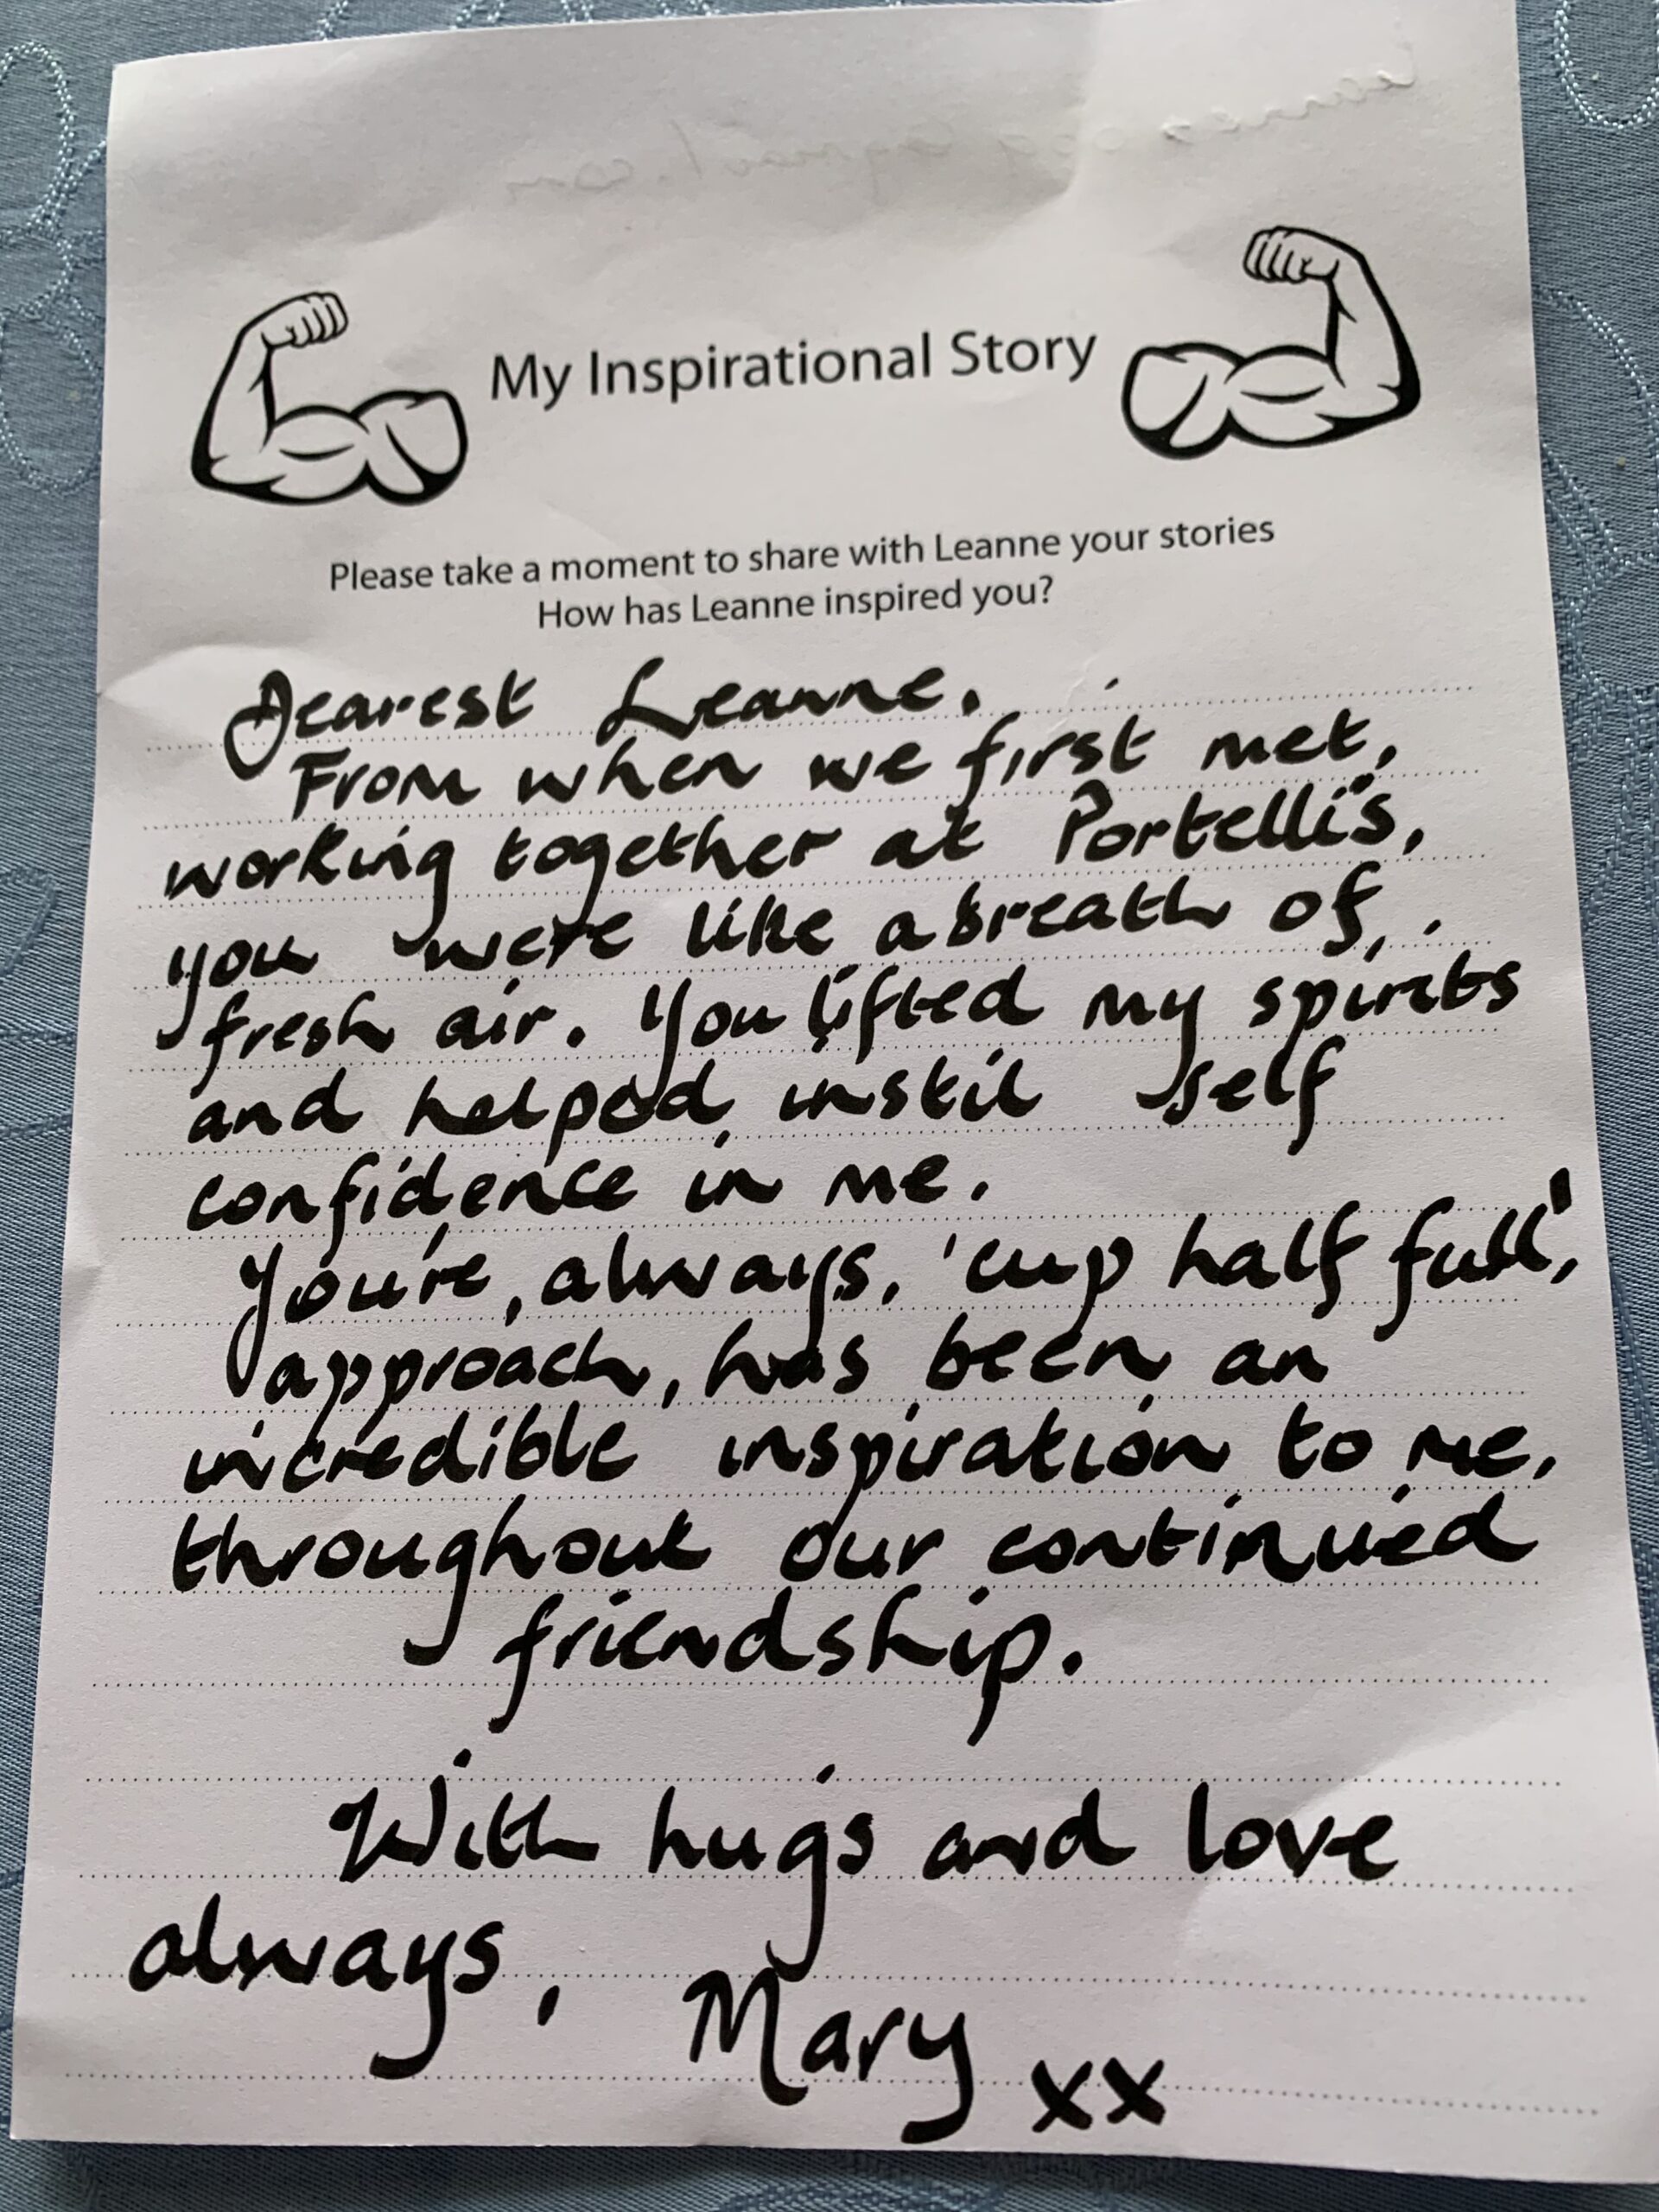 My Inspirational Story
Please take a moment to share with Leanne your stories
How has Leanne inspired you?
Dearest Leanne,
From when we first met,
working together at Portelli's,
you were like a breath of
fresh air. You lifted my spirits
and helped instil self
confidence in me.
You're, always, 'cup half full',
approach, has been an
incredible inspiration to me,
throughout our continued
friendship.
With hugs and love
always,
Mary xx